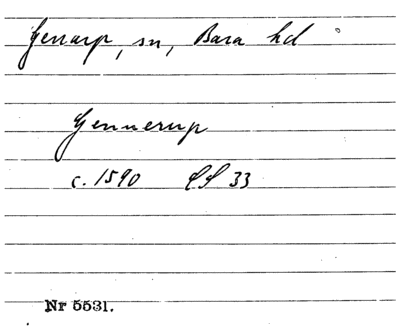 Genarp, sn, Bara hd
Gennerup
c. 1590 LS 33
Nr 5531.